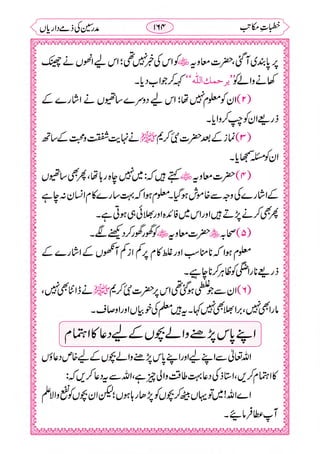 خطباتِ مکاتب ۱۶۴ مدرسین کی ذمے داریاں
پر پابندی آگئی، حضرت معاویہ کو اس کی خبر نہیں تھی؛ اس لیے انھوں نے چھینک
کھانے والے کو ”یرحمك الله“ کہہ کر جواب دیا۔
(۲) ان کو معلوم نہیں تھا؛ اس لیے دوسرے ساتھیوں نے اشارے کے
ذریعے ان کو چپ کروایا۔
(۳) نماز کے بعد حضرت نبیٔ کریم ﷺ نے نہایت شفقت ومحبت کے ساتھ
ان کو مسئلہ سمجھایا۔
(۴) حضرت معاویہ کہتے ہیں کہ: میں چاہ نہیں رہا تھا، پھر بھی ساتھیوں
کے اشارے کی وجہ سے خاموش ہوگیا۔ معلوم ہوا کہ بہت سارے کام انسان نہ چاہتے
ہوئے بھی کرنے پڑتے ہیں اور اس میں فائدہ اور بھلائی ہوتی ہے۔
(۵) صحابہ حضرت معاویہ کو گھور گھور کر دیکھنے لگے۔
معلوم ہوا کہ نامناسب اور غلط کام پر کم از کم آنکھوں کے اشارے کے
ذریعے ناراضگی کو ظاہر کرنا چاہیے۔
(۶) ان سے جو غلطی ہوگئی تھی اس پر حضرت نبیٔ کریم ﷺ نے ڈانٹا بھی نہیں،
مارا بھی نہیں، برا بھلا بھی نہیں کہا۔ یہ ہیں معلم کی خوبیاں اور اوصاف۔
اپنے پاس پڑھنے والے بچوں کے لیے دعا کا اہتمام
اللہ تعالیٰ سے اپنے لیے اور اپنے پاس پڑھنے والے بچوں کے لیے خاص دعاؤں
کا اہتمام کریں، استاذ کی دعا بہت طاقت والی چیز ہے، اللہ سے یہ دعا کریں کہ:
اے اللہ! میں تو یہاں بیٹھ کر بچوں کو پڑھا رہا ہوں؛ لیکن ان بچوں کو نفع والا علم
آپ عطا فرمائیے۔